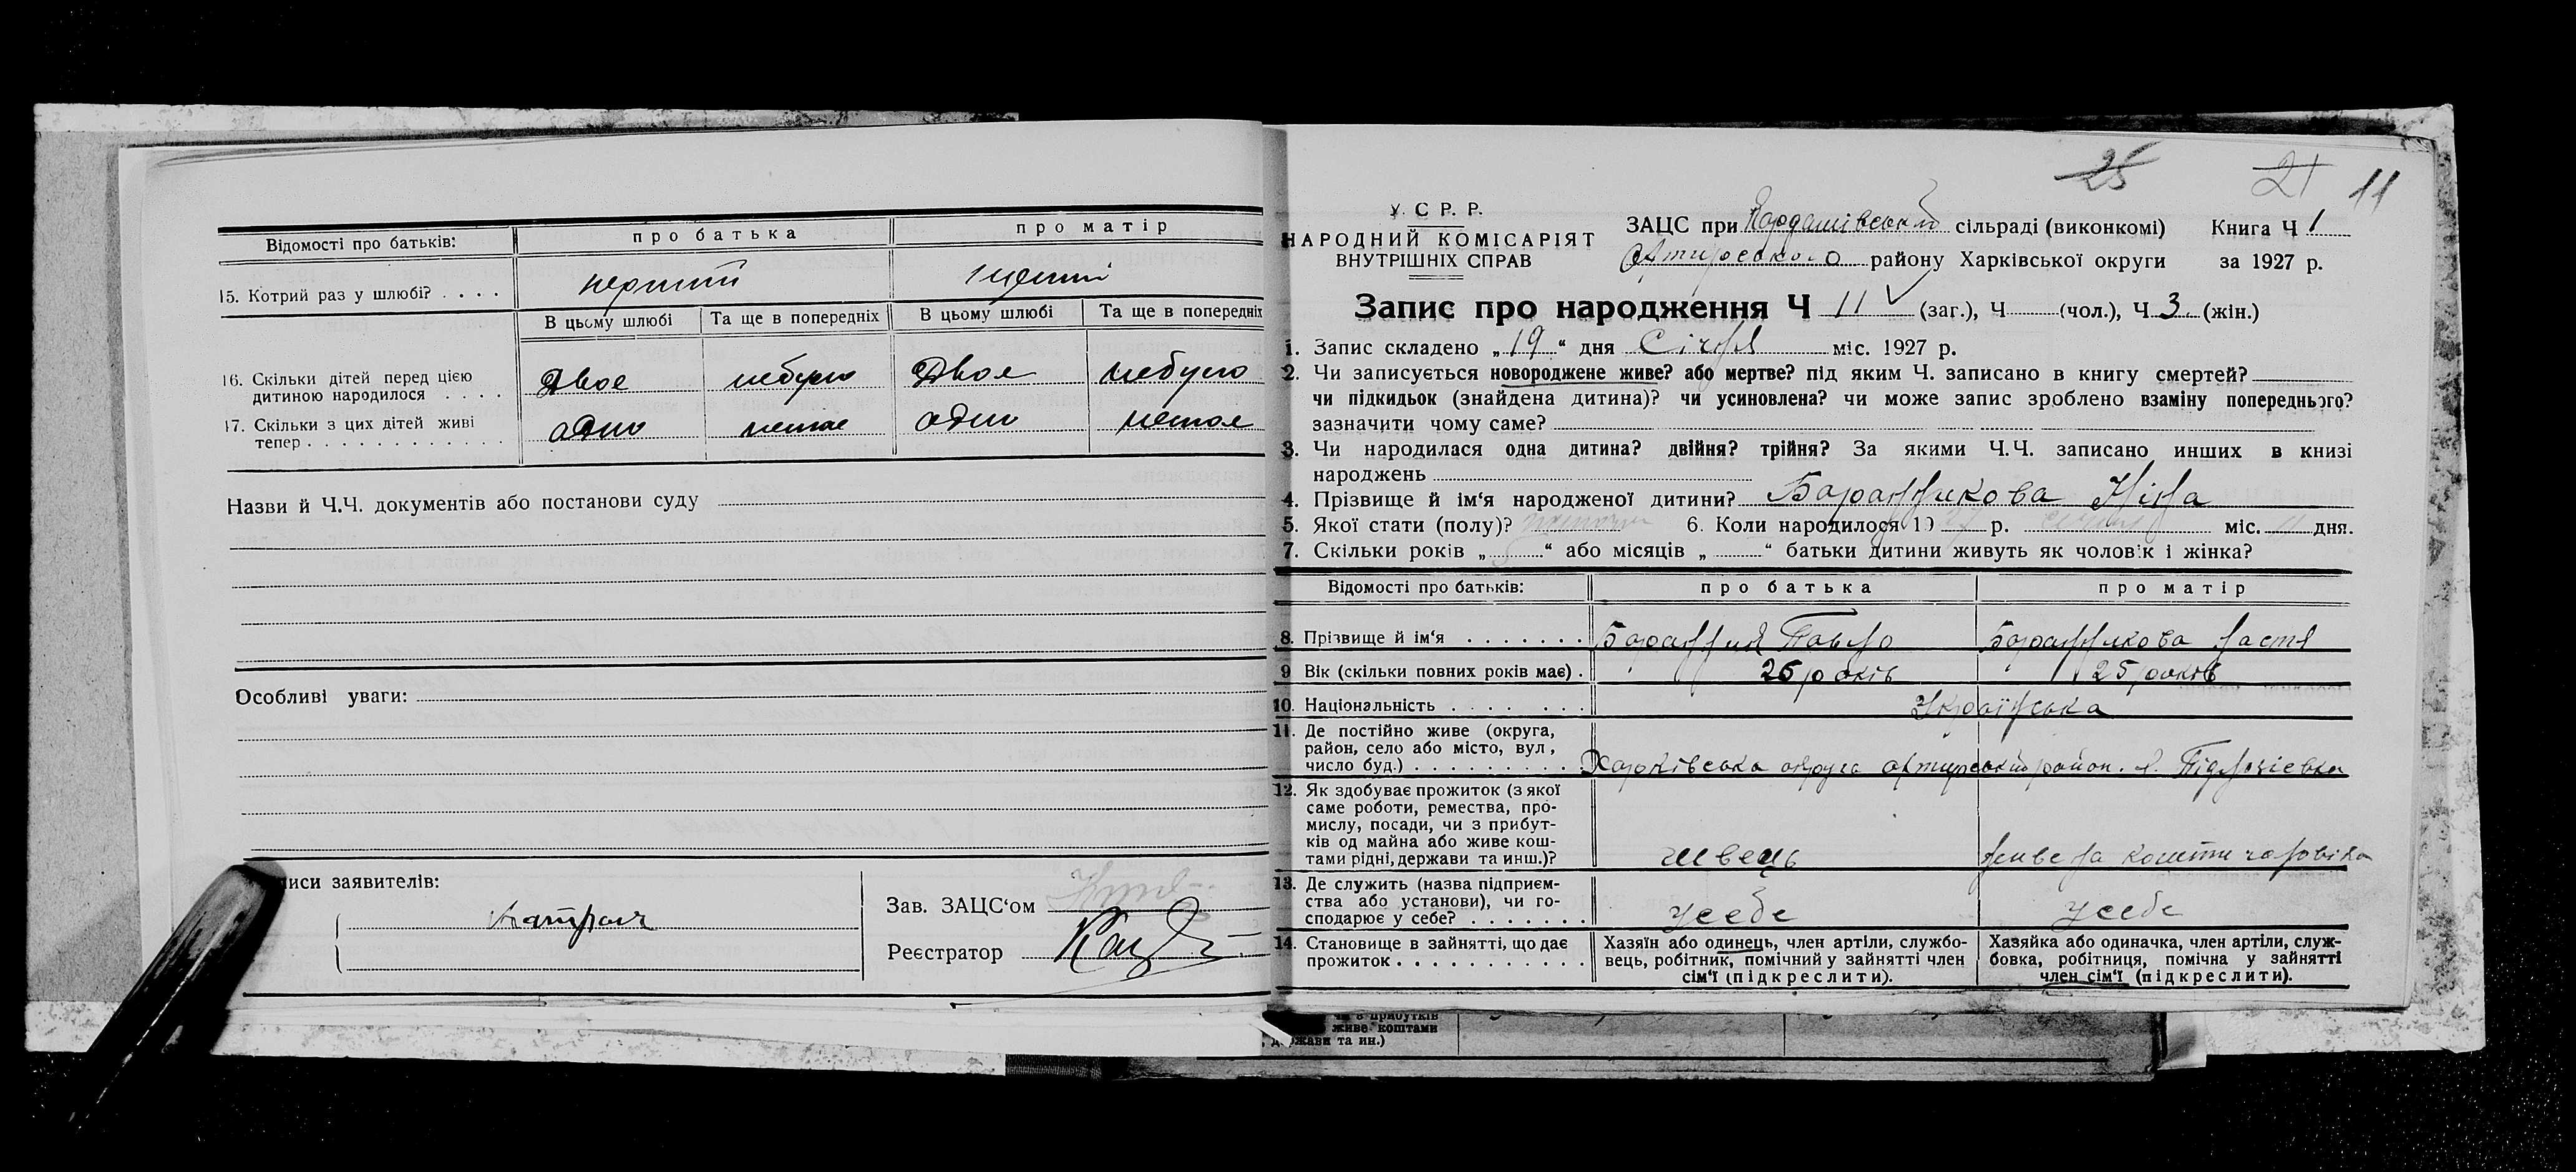 Відомості про батьків: про батька про матір
15. Котрий раз у шлюбі? . . . . перший
В цьому шлюбі Та ще в попередніх В цьому шлюбі Та ще в попередніх
16. Скільки дітей перед цією
дитиною народилося . . . . Двоє небуло Двоє небуло
17. Скільки з цих дітей живі
тепер . . . . . . . . . . . . одно немає одно немає
Назви й Ч.Ч. документів або постанови суду
Особливі уваги:
иси заявителів:
Зав. ЗАЦС‘ом
Реєстратор
25 21 11
У. С Р. Р.
НАРОДНИЙ КОМІСАРІЯТ
ВНУТРІШНІХ СПРАВ
ЗАЦС при Кардашівській сільраді (виконкомі) Книга Ч 1
Охтирського району Харківської округи за 1927 р.
Запис про народження Ч 11 (заг.), Ч (чол.), Ч 3. (жін.)
1. Запис складено „19“ дня Січня міс. 1927 р.
2. Чи записується новороджене живе? або мертве? під яким Ч. записано в книгу смертей?
чи підкидьок (знайдена дитина)? чи усиновлена? чи може запис зроблено взаміну попереднього?
зазначити чому саме?
3. Чи народилася одна дитина? двійня? трійня? За якими Ч.Ч. записано инших в книзі
народжень
4. Прізвище й ім‘я народженої дитини? Бараннікова Ніна
5. Якої стати (полу)? 6. Коли народилося 19 р. міс. 11 дня.
7. Скільки років „ “ або місяців „ “ батьки дитини живуть як чоловік і жінка?
Відомості про батьків: про батька про матір
8. Прізвище й ім‘я . . . . . . . Баранник Павло Бараннікова Настя
9 Вік (скільки повних років має) . 26 років 25 років
10. Національність . . . . . . . Українська
11. Де постійно живе (округа,
район, село або місто, вул,
число буд.) . . . . . . . . . Харківська округа Охтирський район.
12. Як здобуває прожиток (з якої
саме роботи, ремества, про-
мислу, посади, чи з прибут-
ків од майна або живе кош-
тами рідні, держави та инш.)? швець живе на кошти чаловіка
13. Де служить (назва підприєм-
ства або установи), чи го-
сподарює у себе? . . . . . . . усебе усебе
14. Становище в зайнятті, що дає
прожиток . . . . . . . . . . .
Хазяїн або одинець, член артіли, службо-
вець, робітник, помічний у зайнятті член
сім‘ї (підкреслити).
Хазяйка або одиначка, член артіли, служ-
бовка, робітниця, помічна у зайнятті
член сім‘ї (підкреслити).
живе коштами
жави та ин.)